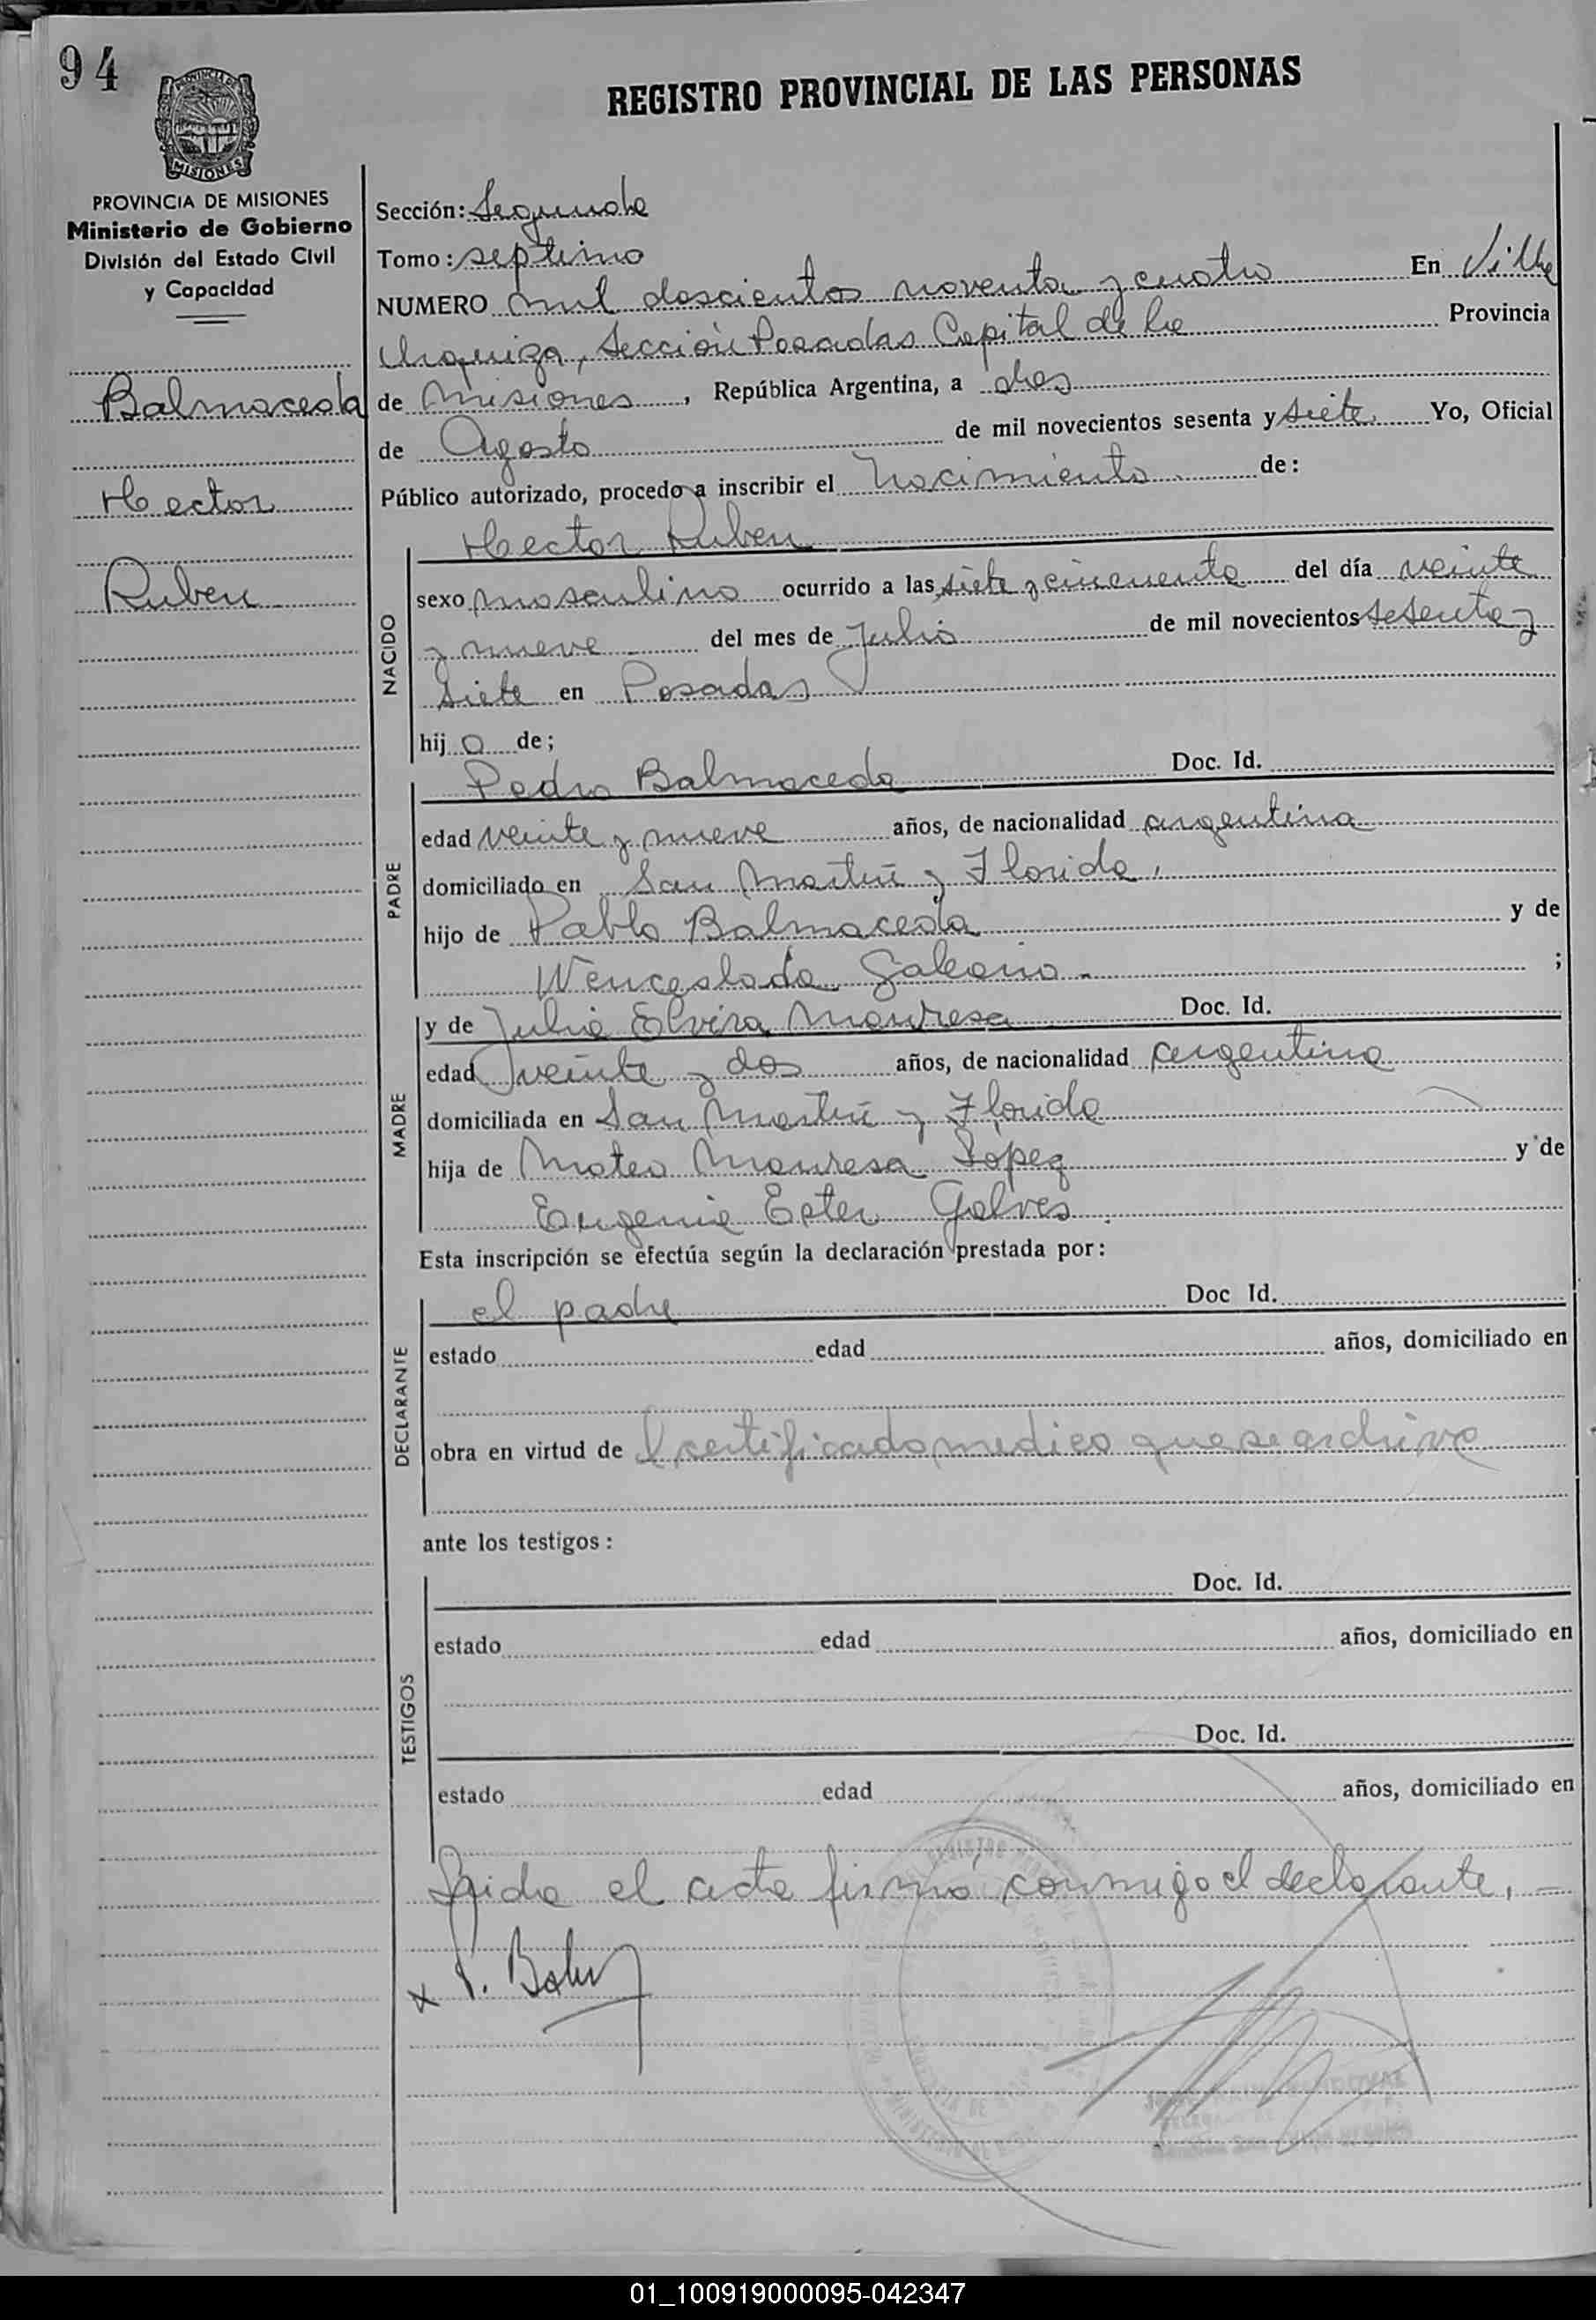 94
REGISTRO PROVINCIAL DE LAS PERSONAS
PROVINCIA DE MISIONES
Ministerio de Gobierno
División del Estado Civil
y Capacidad
Balmaceda
Hector
Ruben
Sección: Segunda
Tomo: septimo
NUMERO mil doscientos noventa y cuatro En Villa
Urquiza, Sección Posadas Capital de la Provincia
de Misiones, República Argentina, a dos
de Agosto de mil novecientos sesenta y siete Yo, Oficial
Público autorizado, procedo a inscribir el nacimiento de:
Hector Ruben
NACIDO
sexo masculino ocurrido a las siete y cincuenta del día veinte
y nueve del mes de Julio de mil novecientos sesenta y
siete en Posadas
hijo de;
Pedro Balmaceda Doc. Id.
PADRE
edad veinte y nueve años, de nacionalidad argentina
domiciliado en San Martín y Florida,
hijo de Pablo Balmaceda y de
Wenceslada Galeano. ;
y de Julia Elvira Manresa Doc. Id.
MADRE
edad veinte y dos años, de nacionalidad argentina
domiciliada en San Martín y Florida
hija de Mateo Manresa López y de
Eugenia Ester Galves.
Esta inscripción se efectúa según la declaración prestada por:
el padre Doc Id.
DECLARANTE
estado edad años, domiciliado en
obra en virtud de l certificado medico que se archiva
ante los testigos:
Doc. Id.
TESTIGOS
estado edad años, domiciliado en
Doc. Id.
estado edad años, domiciliado en
Leida el acta firmó conmigo el declarante, –
x P. Balm
01_100919000095-042347